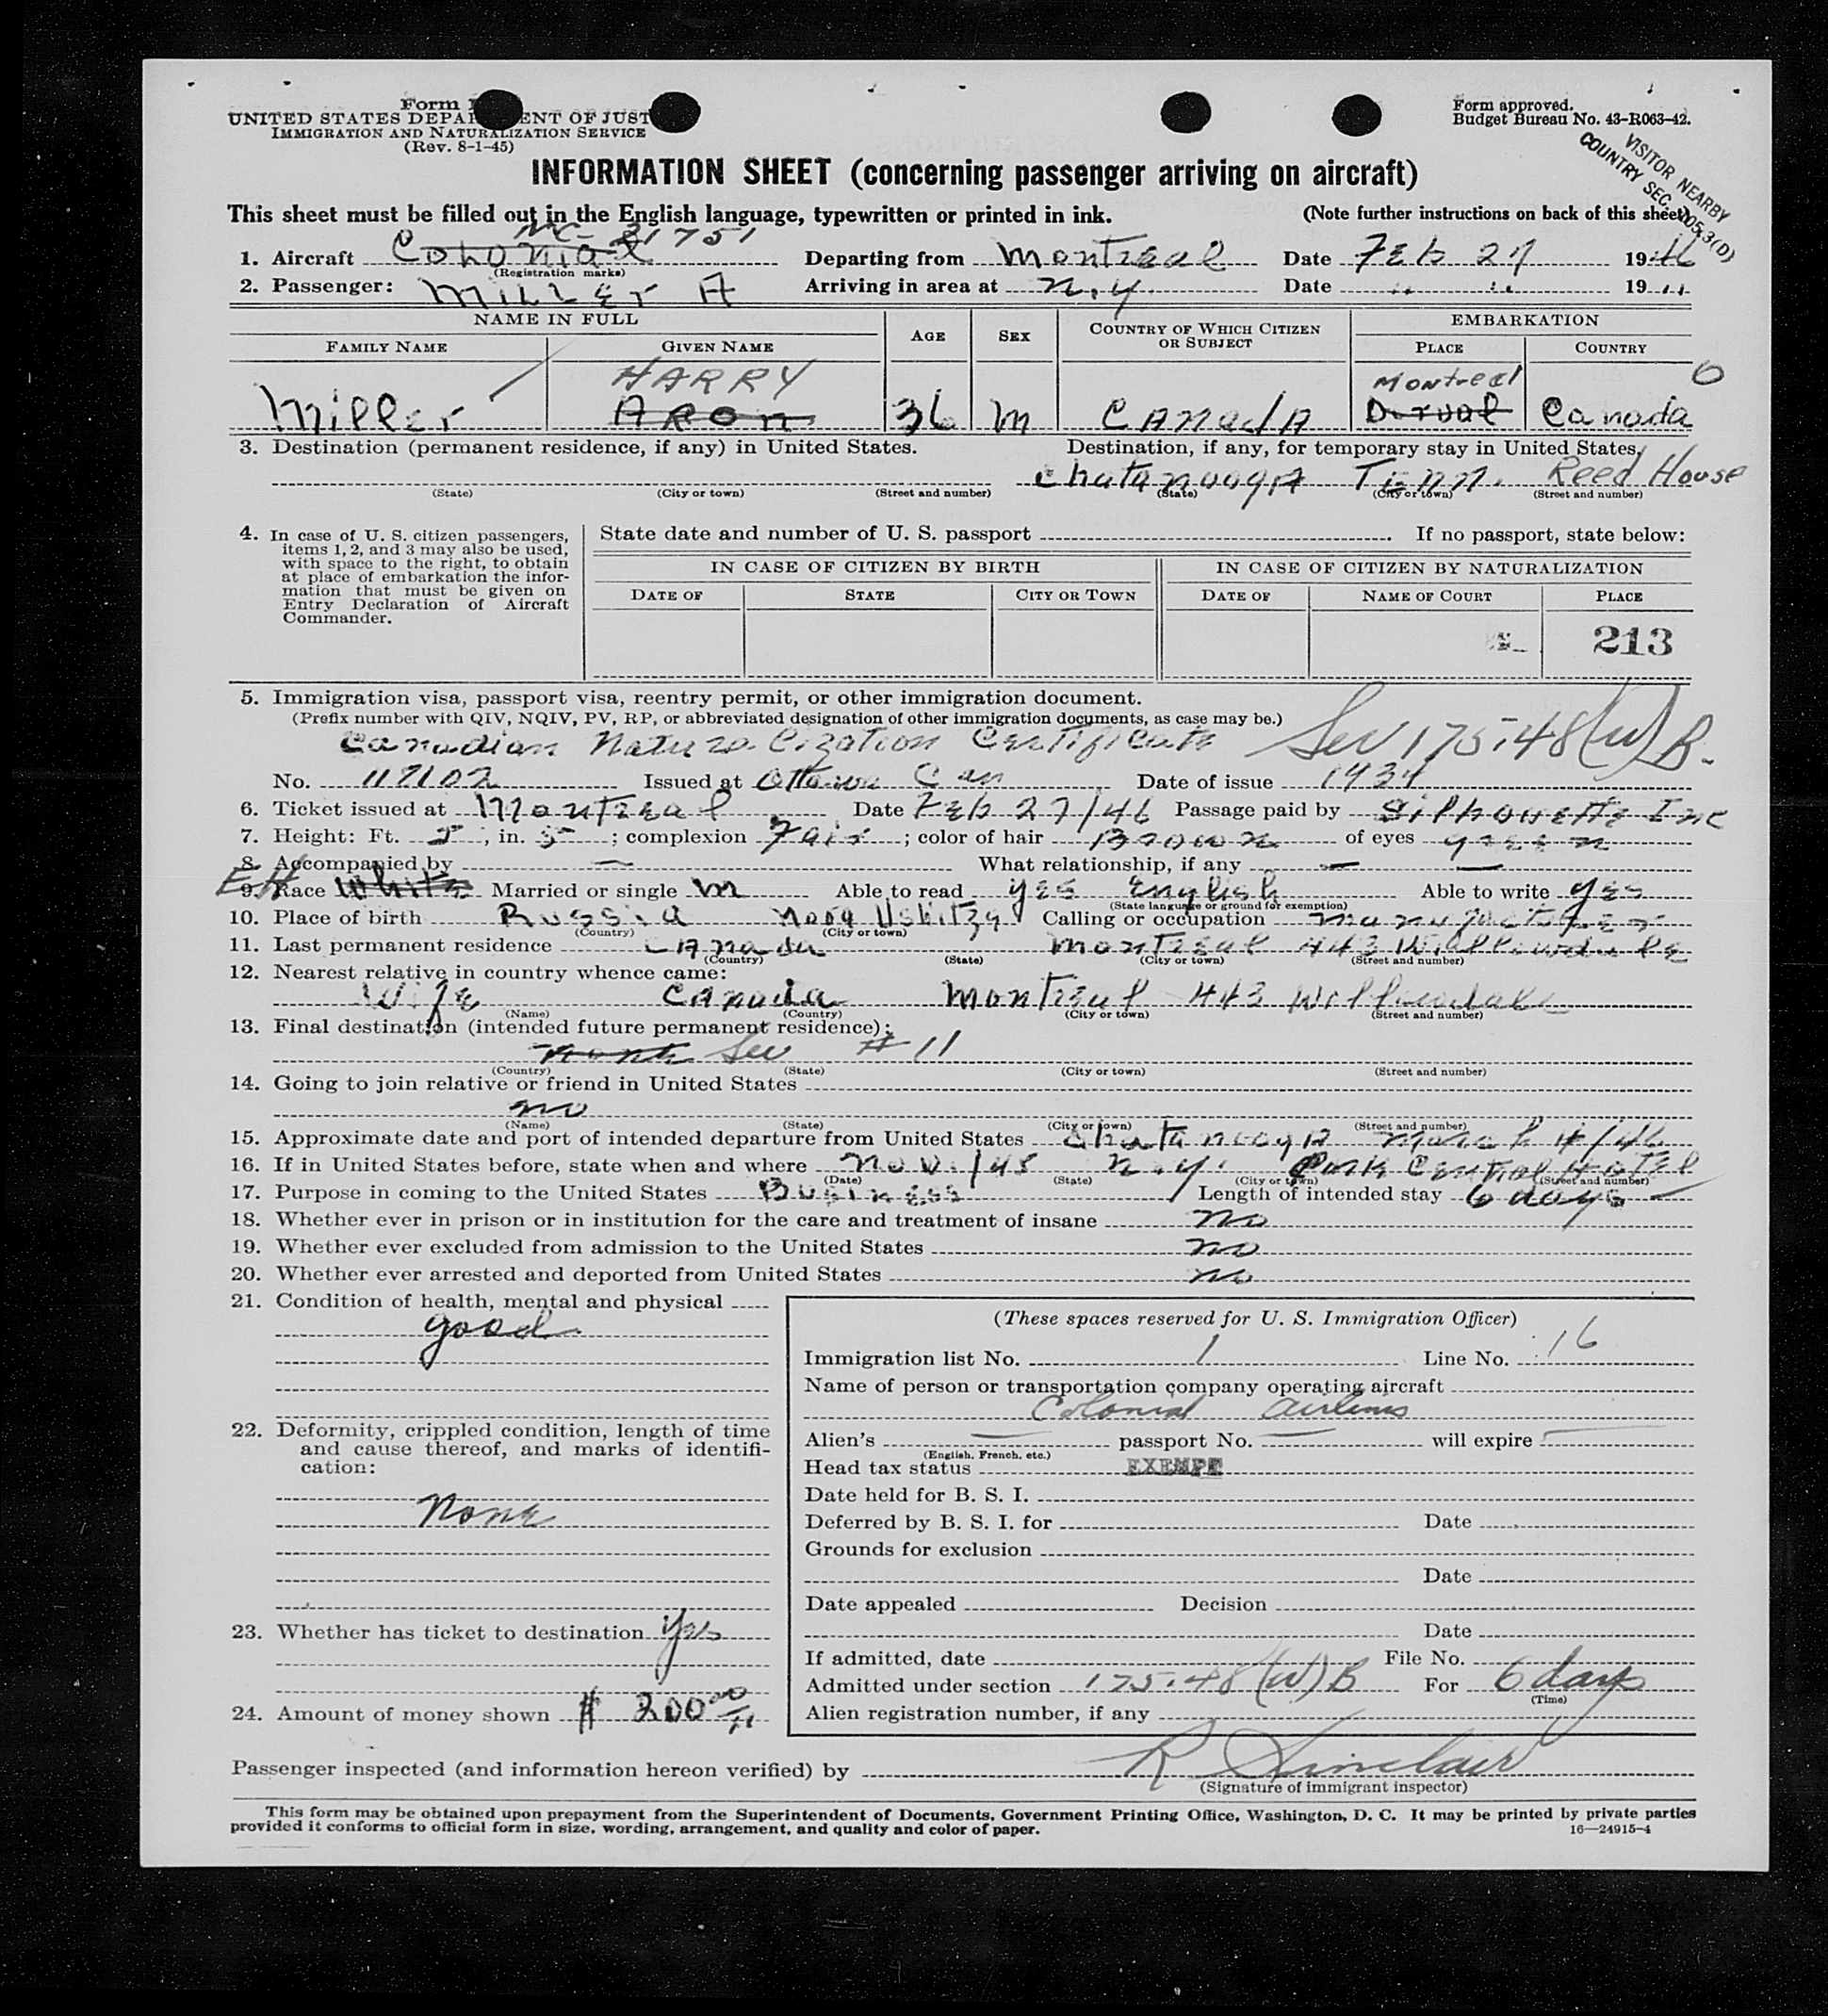 Form
UNITED STATES DEPA ENT OF JUST
IMMIGRATION AND NATURALIZATION SERVICE
(Rev. 8-1-45)
Form approved.
Budget Bureau No. 43-R063-42.
VISITOR NEARBY
COUNTRY SEC. 105.3(D)
INFORMATION SHEET (concerning passenger arriving on aircraft)
This sheet must be filled out in the English language, typewritten or printed in ink. (Note further instructions on back of this sheet)
NC- 21751
1. Aircraft Colonial Departing from Montreal Date Feb 27 1946
(Registration marks)
2. Passenger: Miller A Arriving in area at N.Y. Date " " 19 "
NAME IN FULL AGE SEX COUNTRY OF WHICH CITIZEN OR SUBJECT EMBARKATION
FAMILY NAME GIVEN NAME PLACE COUNTRY
HARRY Montreal O
Miller Aron 36 M CANADA Dorval Canada
3. Destination (permanent residence, if any) in United States. Destination, if any, for temporary stay in United States,
Chatanooga Tenn. Reed House
(State) (City or town) (Street and number) (State) (City or town) (Street and number)
4. In case of U. S. citizen passengers, items 1, 2, and 3 may also be used, with space to the right, to obtain at place of embarkation the information that must be given on Entry Declaration of Aircraft Commander.
State date and number of U. S. passport If no passport, state below:
IN CASE OF CITIZEN BY BIRTH IN CASE OF CITIZEN BY NATURALIZATION
DATE OF STATE CITY OR TOWN DATE OF NAME OF COURT PLACE
213
5. Immigration visa, passport visa, reentry permit, or other immigration document.
(Prefix number with QIV, NQIV, PV, RP, or abbreviated designation of other immigration documents, as case may be.)
Canadian Naturalization Certificate Sec 175.48(W)B.
No. 117102 Issued at Ottawa Can Date of issue 1934
6. Ticket issued at Montreal Date Feb 27/46 Passage paid by Silhouette Inc
7. Height: Ft. 5, in. 5; complexion Fair; color of hair Brown of eyes green
8. Accompanied by — What relationship, if any — —
EH
9. Race White Married or single M Able to read yes English Able to write yes
(State language or ground for exemption)
10. Place of birth Russia Nova Ushitza Calling or occupation manufacturer
(Country) (City or town)
11. Last permanent residence CANada Montreal 443 Willowdale
(Country) (State) (City or town) (Street and number)
12. Nearest relative in country whence came:
Wife Canada Montreal 443 Willowdale
(Name) (Country) (City or town) (Street and number)
13. Final destination (intended future permanent residence):
None See # 11
(Country) (State) (City or town) (Street and number)
14. Going to join relative or friend in United States
no
(Name) (State) (City or town) (Street and number)
15. Approximate date and port of intended departure from United States Chatanooga March 4/46
16. If in United States before, state when and where Nov./45 N.Y. Park Central Hotel
(Date) (State) (City or town) (Street and number)
17. Purpose in coming to the United States Business Length of intended stay 6 days
18. Whether ever in prison or in institution for the care and treatment of insane no
19. Whether ever excluded from admission to the United States no
20. Whether ever arrested and deported from United States no
21. Condition of health, mental and physical
good
22. Deformity, crippled condition, length of time and cause thereof, and marks of identification:
None
23. Whether has ticket to destination Yes
24. Amount of money shown $ 200
(These spaces reserved for U. S. Immigration Officer)
Immigration list No. 1 Line No. 16
Name of person or transportation company operating aircraft
Colonial Airlines
Alien's — passport No. — will expire —
(English, French, etc.)
Head tax status EXEMPT
Date held for B. S. I.
Deferred by B. S. I. for Date
Grounds for exclusion
Date
Date appealed Decision
Date
If admitted, date File No.
Admitted under section 175.48(W)B For 6 days
(Time)
Alien registration number, if any
Passenger inspected (and information hereon verified) by R Sinclair
(Signature of immigrant inspector)
This form may be obtained upon prepayment from the Superintendent of Documents, Government Printing Office, Washington, D. C. It may be printed by private parties
provided it conforms to official form in size, wording, arrangement, and quality and color of paper. 16—24915-4